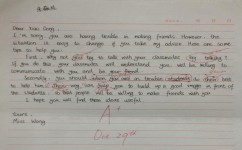 Dear Xiao Dong,
I'm sorry you are having trouble in making friends. However, the
situation is easy to change if you take my advice. Here are some
tips to help you.
First, why not you try to talk with your classmates
if you do this, your classmates will understand you, will be willing to
communicate with you and be your friend.
Secondly, you should when you in trouble, do your best
to help him. This way, can help you to build up a good image in front of
the students. So that people will be willing to make friends with you.
I hope you will find these ideas useful.
Yours,
Miss Wang
A+
Oct 29th